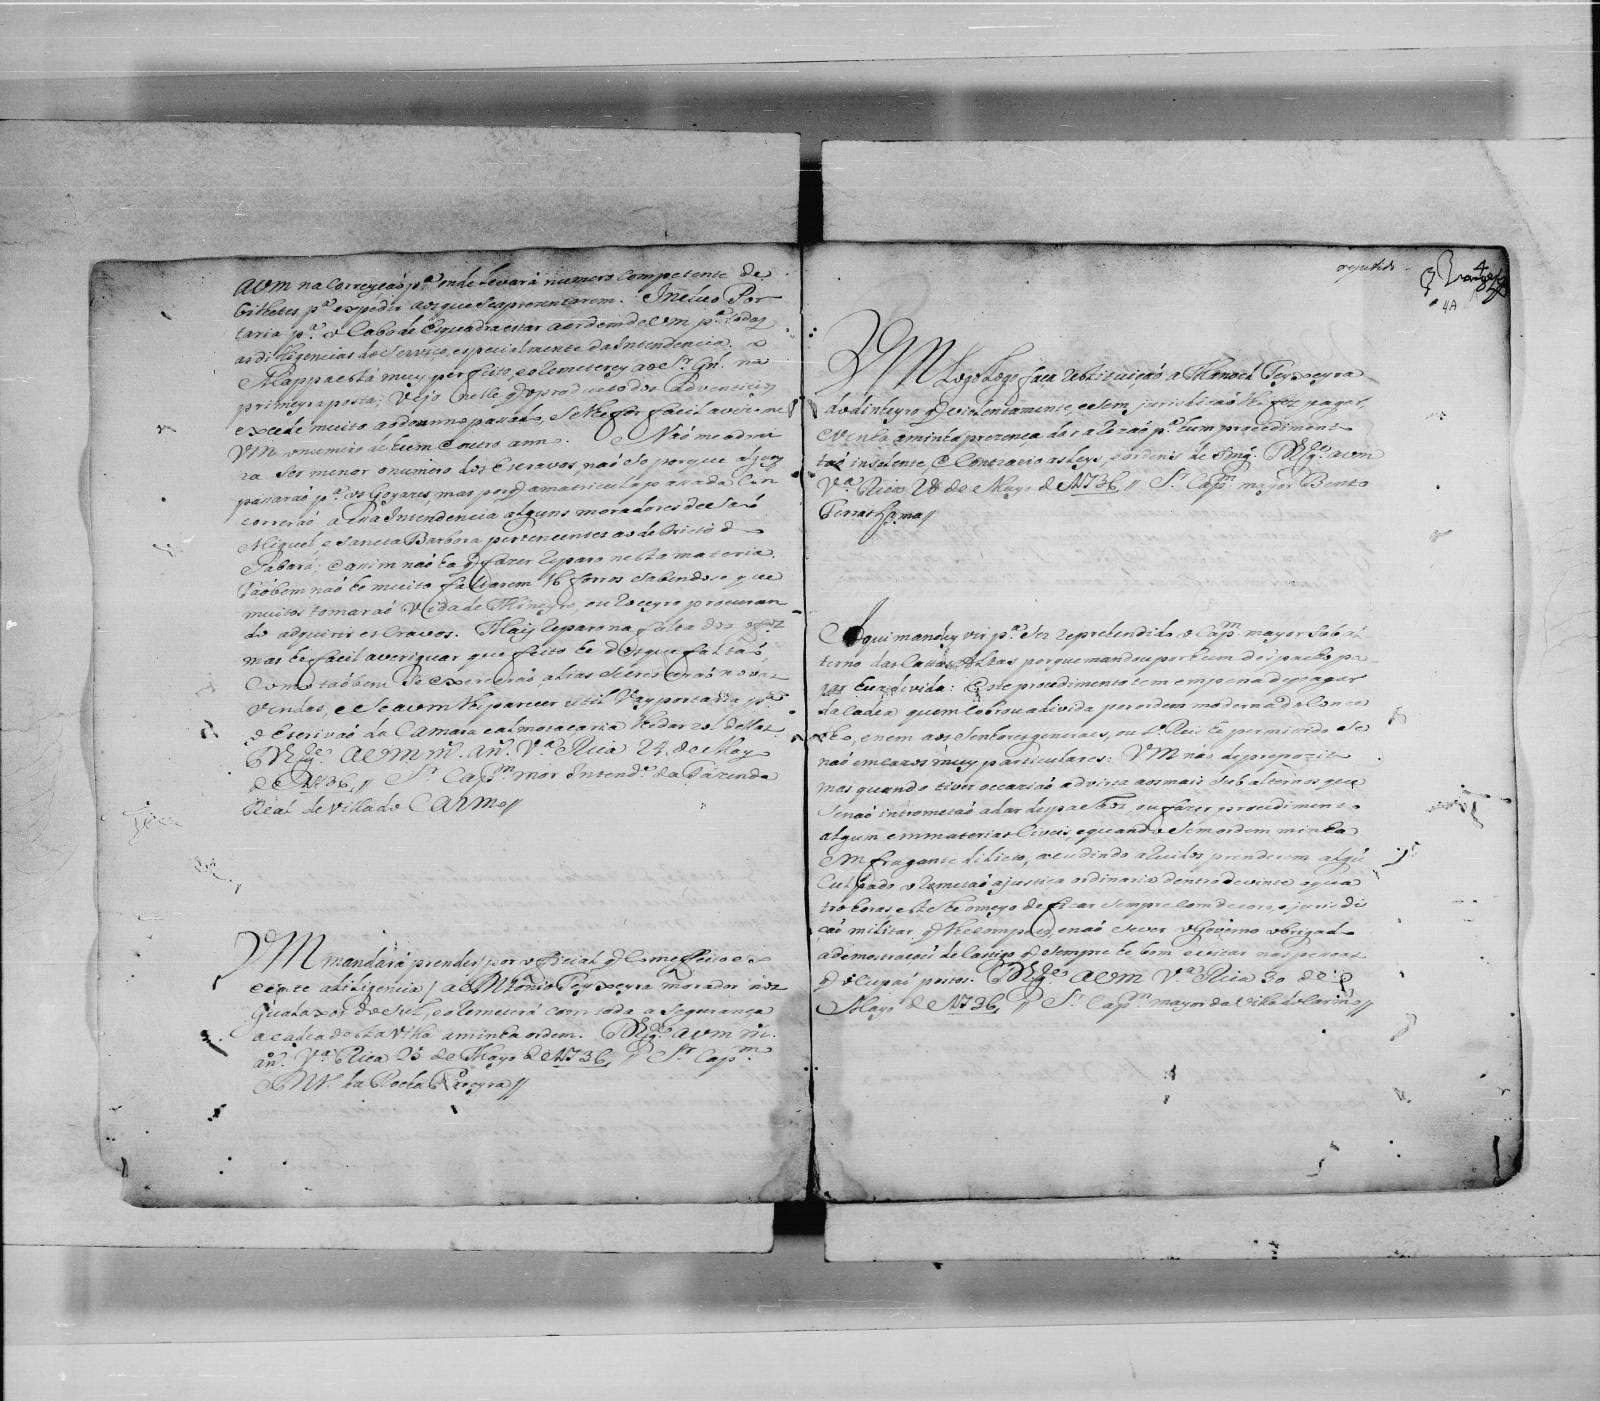 a vm na Correyçaõ p.ª onde Levará numero Competente de
bilhetes p.ª expedir aos que se aprezentarem. Incluo Por
taria p.ª o Cabo de Esquadra estar a ordem de vm p.ª todas
as diligencias do Serviço, especialmente da Intendencia. O
Mappa está muy perfeito, e o Remeterey ao S.r G.al na
primeyra posta; Vejo nelle q o producto dos adventicios
excede muito ao do anno passado, Se lhe for facil avize me
VM o numero de hum e outro anno. Naõ me admi
ra Ser menor o numero dos Escravos, naõ So porque alguns
passaraõ p.ª os Goyazes, mas porq a matricula passada Con
correraõ a essa Intendencia alguns moradores de Saõ
Miguel, e Sancta Barbora pertencentes ao destricto do
Sabará; e assim naõ ha q fazer reparo nesta materia.
Taõbem naõ he muito faltarem 16 forros Sabendose que
muitos tomaraõ Vida de Mineyro, ou Roceyro procuran
do adquirir escravos. Mais reparo na falta dos
mas he facil averiguar que feito he dos que faltaõ,
Como taõbem Se Cresceraõ, alias decresceraõ as
Vendas, e Se a vm lhe parecer util Vay portaria p.ª
o Escrivaõ da Camara e almotacaria lhe dar Rol dellas.
D.s g.e a vm m.s an.s V.ª Rica 24 de Mayo
de 1736 // S.r Cap.m mor Intend.e da Fazenda
Real de Villa do Carmo //
VM mandará prender por official q Com effeito e
ecute a diligencia a Antonio Teyxeyra morador nos
Gualaxos do Sul, e o Remeterá com toda a Segurança
a cadea desta Villa a minha ordem. D.s g.e a vm m.s
an.s V.ª Rica 25 de Mayo de 1736 // S.r Cap.m
da Rocha Pereyra //
repetido
4
4A
VM Logo Logo faça restituiçaõ a Manoel Teyxeyra
do dinheyro q violentamente, e Sem jurisdiçaõ lhe fez pagar,
e Venha a minha prezença dar a Rezaõ p.ª hum procedimento
taõ insolente, e Contrario as Leys, e ordens de S. Mag.e D.s g.e a vm
V.ª Rica 28 de Mayo de 1736 // S.r Cap.m mayor Bento
Ferras Lima //
Aqui mandey vir p.ª Ser reprehendido o Cap.m mayor Subal
terno das Cattas Altas porque mandou por hum despacho pa
gar hua divida: Este procedimento tem em pena de pagar
da Cadea quem Cobrou a divida por ordem moderna do Conce
lho, e nem aos Senhores generaes, ou V. Reis he permitido Se
naõ em Cazos muy particulares: VM naõ de propozito
mas quando tiver occaziaõ advirta aos mais Subalternos que
Se naõ intrometaõ a dar despachos, ou fazer procedimento
algum em materias Civeis, e quando Sem ordem minha
em fragante delicto, acudindo a Ruidos prenderem algũ
Culpado o Remetaõ a justiça ordinaria dentro de vinte e qua
tro horas este he o meyo de ficar Sempre Com decoro, e jurisdi
çaõ militar q lhe Compete, e naõ Se ver o Governo obrigado
a demostraçoes de Castigo q Sempre he bom evitar nas pessoas
q ocupaõ postos. D.s g.e a vm V.ª Rica 30 de
Mayo de 1736 // S.r Cap.m mayor da Villa do Carmo //